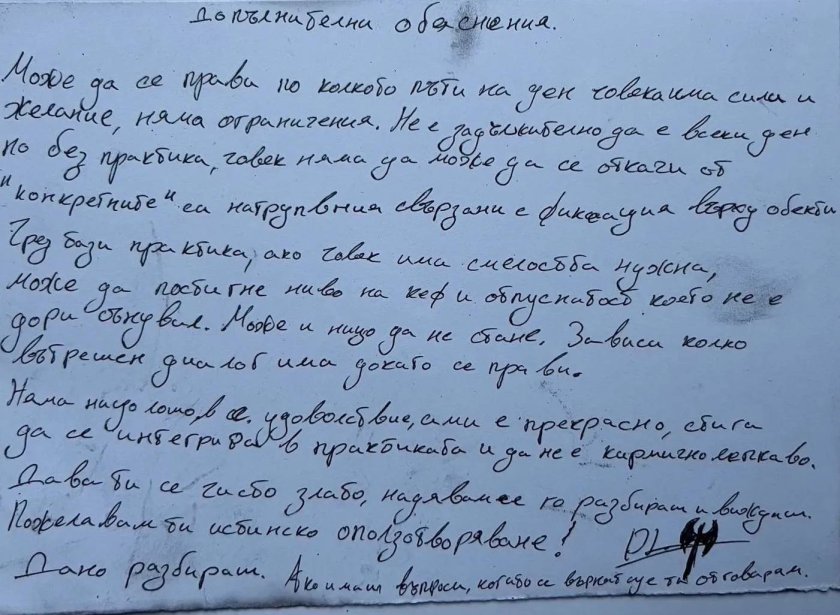 Допълнителни обяснения.
Може да се прави по колкото пъти на ден човека има сили и
желание, няма ограничения. Не е задължително да е всеки ден
но без практика, човек няма да може да се откачи от
"конкретните" си натрупвания свързани с фиксация върху обекти
Чрез тази практика, ако човек има смелостта нужна,
може да постигне ниво на кеф и отпуснатост което не е
дори сънувал. Може и нищо да не стане. Зависи колко
вътрешен диалог има докато се прави.
Няма нищо лошо, в удоволствие, сами е прекрасно, стига
да се интегрира в практиката и да не е кармично лепкаво.
Дава ти се чисто злато, надявам се го разбираш и виждаш.
Пожелавам ти истинско оползотворяване!
Дано разбираш. Ако имаш въпроси, когато се върна ще ти отговарям.